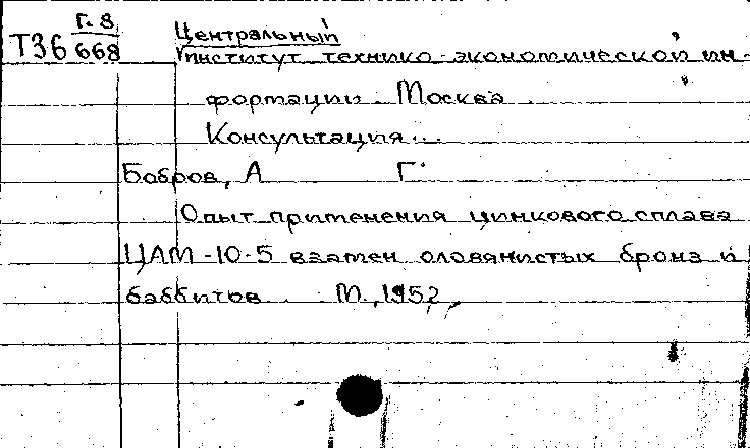 Т36 Г.8 Центральный
668 институт технико-экономической ин-
формации. Москва
Консультация...
Бобров, А Г.
Опыт применения цинкового сплава
ЦАМ-10-5 взамен оловянистых бронз и
баббитов. М., 1952,